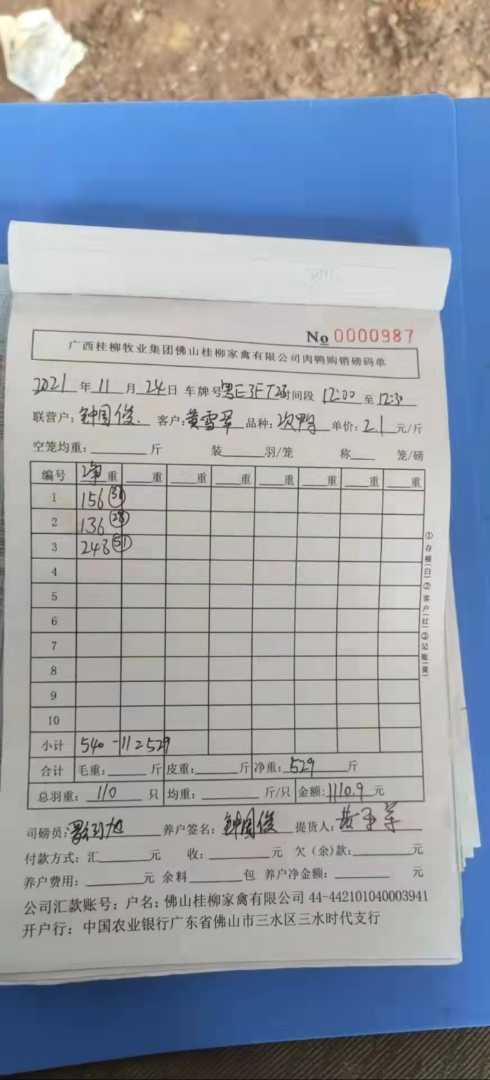 No 0000987
广西桂柳牧业集团佛山桂柳家禽有限公司肉鸭购销磅码单
2021 年 11 月 24 日 车牌号 粤E3FT23 时间段 12:00 至 12:30
联营户: 钟国俊 客户: 黄雪翠 品种: 次鸭 单价: 2.1 元/斤
空笼均重: 斤 装 羽/笼 称 笼/磅
编号 净重 重 重 重 重 重 重 重
1 156 31
2 136 28
3 248 51
4
5
6
7
8
9
10
小计 540-11=529
合计 毛重: 斤 皮重: 斤 净重: 529 斤
总羽重: 110 只 均重: 斤/只 金额: 1110.9 元
司磅员: 养户签名: 钟国俊 提货人:
付款方式: 汇 元 收: 元 欠(余)款: 元
养户费用: 元 余料 包 养户净金额: 元
公司汇款账号: 户名: 佛山桂柳家禽有限公司 44-442101040003941
开户行: 中国农业银行广东省佛山市三水区三水时代支行
①存根(白)②客户(红)③记账(黄)